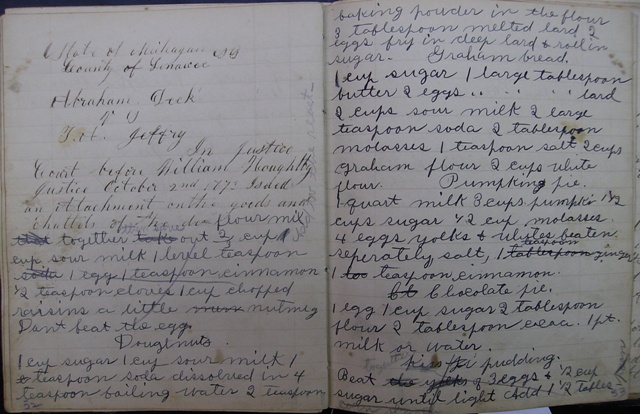 State of Michagan } SS
County of Lenawee
Abraham Dick
VS
T. W. Jeffry
In Justice
Court before William Houghtby
Justice October 2nd 1873 Isued
an Attachment on the goods and
chattels of the de flour mix
that together take out 2/3 cup
cup sour milk 1 level teaspoon
soda 1 egg 1 teaspoon cinnamon
1/2 teaspoon cloves 1 cup chopped
raisins a little nutmeg
Dan't beat the egg.
Doughnuts.
1 cup sugar 1 cup sour milk 1
teaspoon soda dissolved in 4
teaspoon boiling water 2 teaspoon
52
baking powder in the flour
3 tablespoon melted lard 2
eggs fry in deep lard & roll in
sugar. Graham bread.
1 cup sugar 1 large tablespoon
butter 2 eggs " " " lard
2 cups sour milk 2 large
teaspoon soda 2 tablespoon
molasses 1 teaspoon salt 2 cups
graham flour 2 cups white
flour. Pumpking pie.
1 quart milk 3 cups pumpki 1 1/2
cups sugar 1/2 cup molasses.
4 eggs yolks & whites beaten
teaspoon
seperately salt, 1 tablespoon ginger
1 tea teaspoon cinnamon.
Chocolate pie.
1 egg 1 cup sugar 2 tablespoon
flour 2 tablespoon cocoa. 1 pt.
milk or water.
pudding.
Beat the yolks of 3 eggs & 1/2 cup
sugar until light Add 1 1/2 tables-
53